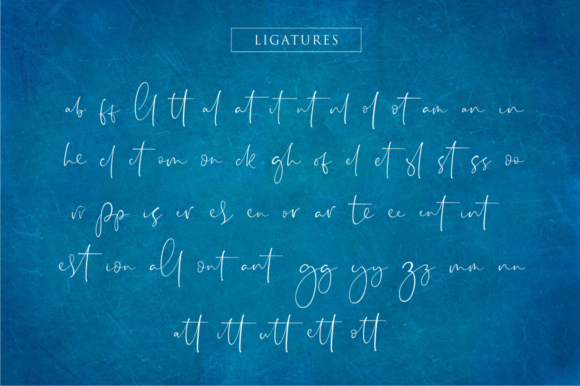 LIGATURES
ab ff ll tt al at it nt nl ol ot am an in
he cl ct om on ck gh of el et sl st ss oo
rr pp is er es en or ar te ee ent int
est ion all ont ant gg yy zz mm nn
att itt utt ett ott